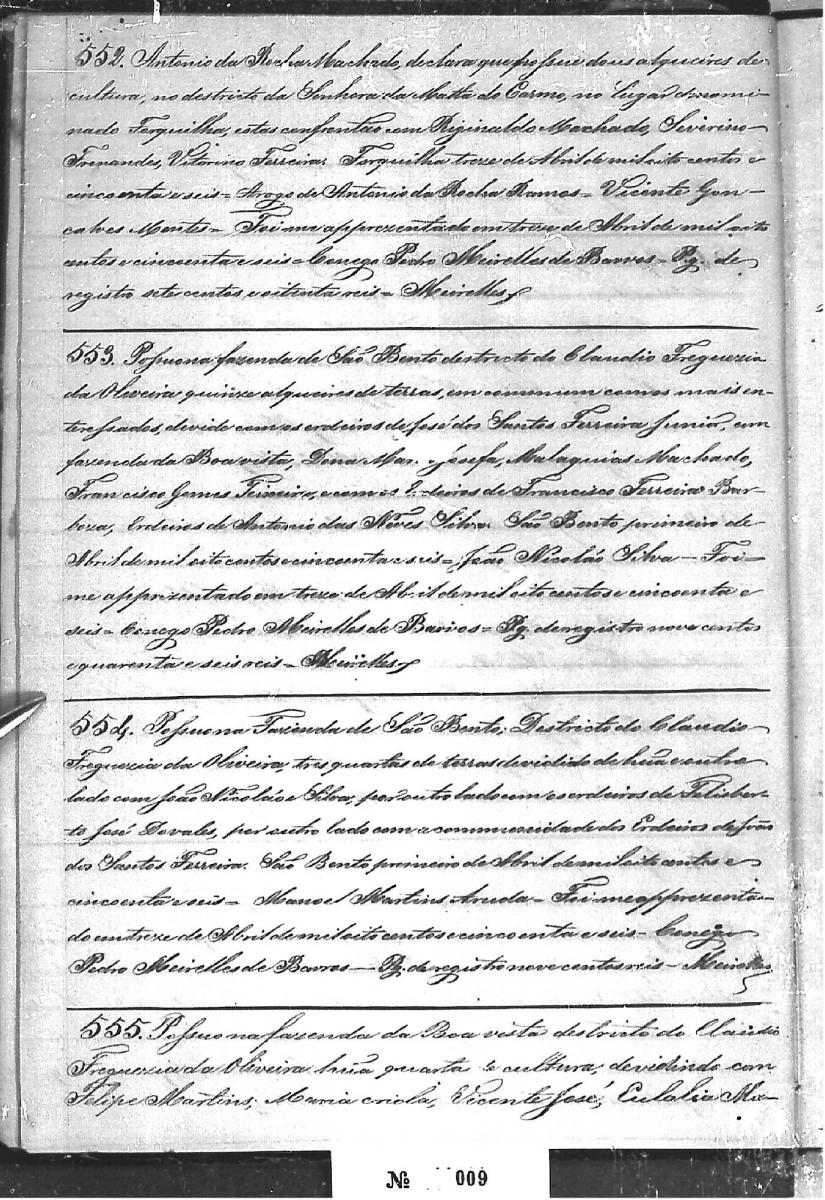 552. Antonio da Rocha Machado, declara que possue dous alqueires de
cultura, no destricto da Senhora da Matta do Carmo, no lugar denomi-
nado Forquilha, estas confrontão com Riginaldo Machado, Siverino
Frenandes, Vitorino Ferreira. Forquilha treze de Abril de mil oito centos e
cincoenta e seis = Arogo de Antonio da Rocha Ramos = Vicente Gon-
calves Montes = Foi me apprezentado em treze de Abril de mil oito
centos e cincoenta e seis = Conego Pedro Meirelles de Barros = Pg. de
registro sete centos e oitenta reis = Meirelles
553. Possuo na fazenda de São Bento destricto do Claudio Freguezia
da Oliveira quinze alqueires de terras, em commum com os mais en-
teressados, devide com os erdeiros de José dos Santos Ferreira Junior, com
fazenda da Boa vista, Dona Mar. Josefa, Malaquias Machado,
Francisco Gomes Teixeira, e com os Erdeiros de Francisco Ferreira Bar-
boza, Erdeiros de Antonio das Neves Silva. São Bento primeiro de
Abril de mil oito centos e cincoenta e seis = João Nicoláo Silva = Foi
me apprezentado em treze de Abril de mil oito centos e cincoenta e
seis = Conego Pedro Meirelles de Barros = Pg. de registro nove centos
e quarenta e seis reis = Meirelles
554. Possuo na Fazenda de São Bento, Destricto do Claudio
Freguezia da Oliveira, tres quartas de terras devidido de hũa e outro
lado com João Nicoláo e Silva, por outro lado com os erdeiros de Felisber-
to José Dovales, por outro lado com a commumcidade dos Erdeiros de João
dos Santos Ferreira. São Bento primeiro de Abril de mil oito centos e
cincoenta e seis = Manoel Martins Aruda = Foi me apprezenta-
do em treze de Abril de mil oito centos e cincoenta e seis = Conego
Pedro Meirelles de Barros = Pg. de registro nove centos reis = Meirelles
555. Possuo na fazenda da Boa vista destricto do Claudio
Freguezia da Oliveira hũa quarta de cultura, devidindo com
Felipe Martins, Maria criola, Vicente José, Eulalia Ma-
№ 009